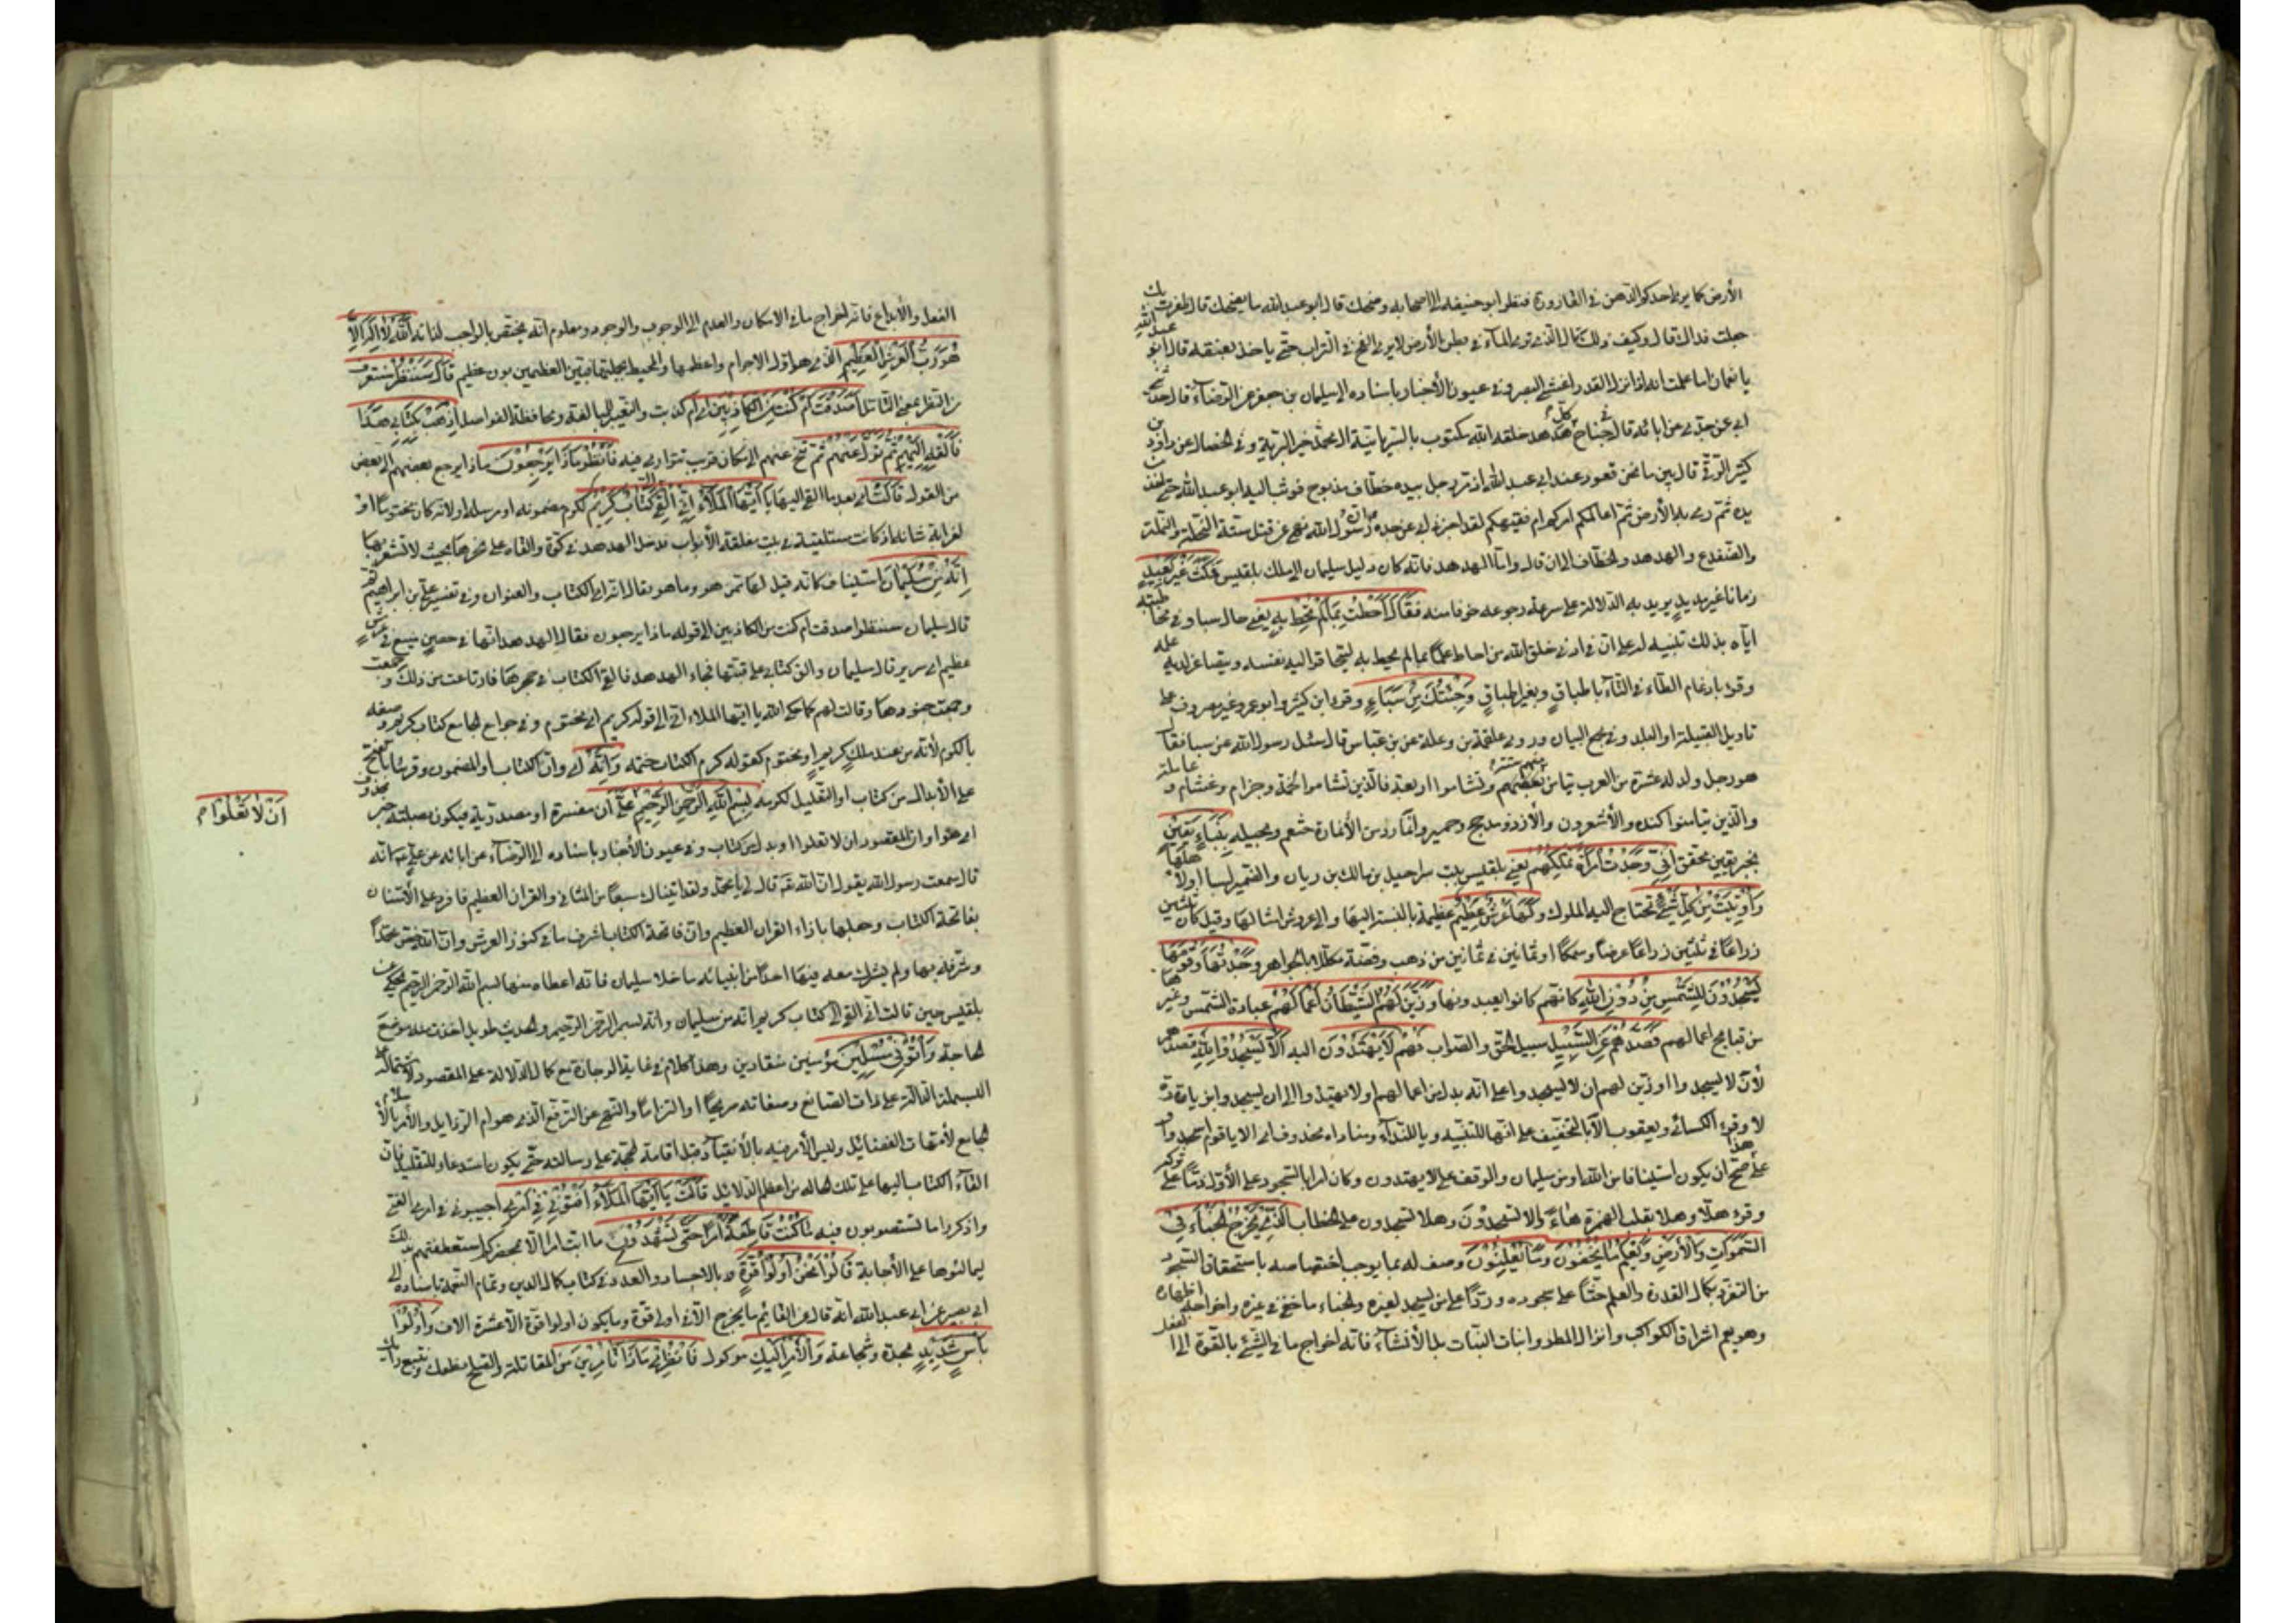 الأرض كما يرى احدكم الدهن في القارورة فنظر ابو حنيفه الى اصحابه وضحك قال ابو عبد الله ما يضحك قال ظفرت بك
جعلت فداك قال وكيف ذلك قال الذي يرى المآء في بطن الأرض لا يرى الفخ في التراب حتى ياخذ بعنقه قال ابو عبد الله
يا نعمان اما علمت انه اذا نزل القدر اغشي البصر وفي عيون الأخبار باسناده الى سليمان بن جعفر عن الرضاء قال حدثني
ابي عن جدي عن ابائه قال في جناح كل هدهد خلقه الله مكتوب بالسريانية ال محمد خير البرية وفي الخصال عن داود بن
كثير الرقي قال بين ما نحن قعود عند ابي عبد الله اذ مر رجل بيده خطاف مذبوح فوثب اليه ابو عبد الله حتى اخذ من
يده ثم رمى بها الأرض ثم اعالمكم امركم ام فقيهكم لقد اخبرني ابي عن جده ان رسول الله نهى عن قتل ستة النحلة والنملة
والضفدع والهدهد والخطاف الى ان قال واما الهدهد فانه كان دليل سليمان الى ملك بلقيس فمكث غير بعيد
زمانا غير مديد يريد به الدلالة على سرعة رجوعه خوفا منه فقال احطت بما لم تحط به يعني حال سبا وفي مخاطبته
اياه بذلك تنبيه له على ان في ادنى خلق الله من احاط علما بما لم يحط به ليتحاقر اليه نفسه ويتصاغر لديه علمه
وقرء بادغام الطاء في التآء باطباق وبغير اطباق وجئتك من سباء وقرء ابن كثير وابو عمرو غير مصروف على
تاويل القبيلة او البلد وفي مجمع البيان وروى علقمة بن وعلة عن بن عباس قال سئل رسول الله عن سبا فقال
هو رجل ولد له عشرة من العرب تيامن منهم ستة وتشاموا اربعة فالذين تشاموا لخم وجزام وغسان وعاملة
والذين تيامنوا كنده والأشعرون والأزد ومدحج وحمير وانمار ومن الأنمارة خثعم وبجيله بنباء يقين
بخبر يقين محقق اني وجدت امرأة تملكهم يعني بلقيس بنت سراحيل بن مالك بن ريان والضمير لسبا او لأهلها
واوتيت من كل شئ تحتاج اليه الملوك ولها عرش عظيم عظيمة بالنسبة اليها والى عروش امثالها وقيل كان ثلثين
زراعا في ثلثين زراعا عرضا وسمكا او ثمانين في ثمانين من ذهب وفضة مكللا بالجواهر وجدتها وقومها
يسجدون للشمس من دون الله كانهم كانوا يعبدونها وزين لهم الشيطان اعمالهم عبادة الشمس وغيرها
من قبايح اعمالهم فصدهم عن السبيل سبيل الحق والصواب فهم لا يهتدون اليه الا يسجدوا لله فصدهم
لأن لا يسجدوا او زين لهم ان لا يسجدوا على انه بدل من اعمالهم او لا يهتدوا الى ان يسجدوا بزيادة
لا وقرء الكسائي ويعقوب الا بالتخفيف على انها للتنبيه ويا للندآء ومناداه محذوف اي الا يا قوم اسجدوا و
على هذا صح ان يكون استينافا من الله او من سليمان والوقف على لا يهتدون وكان امرا بالسجود على الأول ذما على تركه
وقرء هلا وهلا بقلب الهمزة هاء والا تسجدون وهلا تسجدون على الخطاب الذي يخرج الخباء في
السموات والأرض ويعلم ما يخفون وما يعلنون وصف له بما يوجب اختصاصه باستحقاق السجود
من التفرد بكمال القدرة والعلم حثا على سجوده وردا على من يسجد لغيره والخباء ما خفى في غيره واخراجه اظهاره
وهو يعم اشراق الكواكب وانزال المطر وانبات النبات بل الأنشآء فانه اخراج ما في الشيئ بالقوة الى الفعل
الفعل والأبداع فانه اخراج ما في الامكان والعدم الى الوجوب والوجود ومعلوم انه يختص بالواجب لذاته الله لا اله الا
هو رب العرش العظيم الذي هو اول الاجرام واعظمها والمحيط بجملتها فبين العظيمين بون عظيم قال سننظر سنتعرف
من النظر بمعنى التامل اصدقت ام كنت من الكاذبين اي ام كذبت والتغيير للمبالغة ومحافظة الفواصل اذهب بكتابي هذا
فالقه اليهم ثم تول عنهم ثم تنح عنهم الى مكان قريب تتوارى فيه فانظر ماذا يرجعون ماذا يرجع بعضهم الى بعض
من القول قالت اي بعد ما القى اليها يا ايها الملاء اني القي الي كتاب كريم لكرم مضمونه او مرسله او لانه كان مختوما او
لغرابة شانه اذ كانت مستلقية في بيت مغلقة الأبواب فدخل الهدهد في كوة والقاه على نحرها بحيث لا تشعر بها
انه من سليمان استيناف كانه قيل لها ممن هو وما هو فقال انه اي الكتاب والعنوان وفي تفسير علي بن ابراهيم
قال سليمان سننظر اصدقت ام كنت من الكاذبين الى قوله ماذا يرجعون فقال الهدهد انها في حصن منيع في عرش
عظيم اي سرير قال سليمان والق كتابي على قبتها فجاء الهدهد فالقى الكتاب في حجرها فارتاعت من ذلك وجمعت
وجمعت جنودها وقالت لهم كما حكى الله يا ايها الملاء اني الى قوله كريم اي مختوم وفي جوامع الجامع كتاب كريم وصفه
بالكرم لأنه من عند ملك كريم او مختوم كقوله كرم الكتاب ختمه وانه اي وان الكتاب او المضمون وقرئا بالفتح
على الأبدال من كتاب او التعليل لكرمه بسم الله الرحمن الرحيم على ان مفسرة او مصدرية فيكون بصلته خبر محذوف
ان لا تعلوا م
اي هو او ان المقصود ان لا تعلوا او بدل من كتاب وفي عيون الأخبار باسناده الى الرضاء عن ابائه عن علي انه
قال سمعت رسول الله يقول ان الله قال لي يا محمد ولقد اتيناك سبعا من المثاني والقران العظيم فافرد على الأمتنان
بفاتحة الكتاب وجعلها بازاء القران العظيم وان فاتحة الكتاب اشرف ما في كنوز العرش وان الله خص محمدا
وشرفه بها ولم يشرك معه فيها احدا من انبيائه ما خلا سليمان فانه اعطاه منها بسم الله الرحمن الرحيم يحكي عن
بلقيس حين قالت اني القي الي كتاب كريم انه من سليمان وانه بسم الرحمن الرحيم والحديث طويل اخذت منه موضع
الحاجة وأتوني مسلمين مؤمنين منقادين وهذا كلام في غاية الوجازة مع كمال الدلالة على المقصود لاشتماله على
البسملة الدالة على ذات الصانع وصفاته صريحا او التزاما والنهي عن الترفع الذي هو ام الرذايل والأمر بالأسلام
الجامع لأمهات الفضائل وليس الأمر فيه بالأنقياد قبل اقامة الحجة على رسالته حتى يكون استدعاء للتقليد فان
القآء الكتاب اليها على تلك الحالة من اعظم الدلائل قالت يا ايها الملاء افتوني في امري اجيبوني في امري الفتى
واذكروا ما تستصوبون فيه ما كنت قاطعة امرا حتى تشهدون ما ابت امرا الا بمحضركم استعطفتهم بذلك
ليمالئوها على الأجابة قالوا نحن اولوا قوة بالاجساد والعدد وفي كتاب كمال الدين وتمام النعمة باسناده الى
ابي بصير عن ابي عبد الله انه قال عن القائم ما يخرج الا في اولي قوة وما يكون اولوا قوة الا عشرة الاف واولوا
باس شديد نجدة وشجاعة والأمر اليك موكول فانظري ماذا تامرين من المقاتلة والصلح نطعك ونتبع رأيك